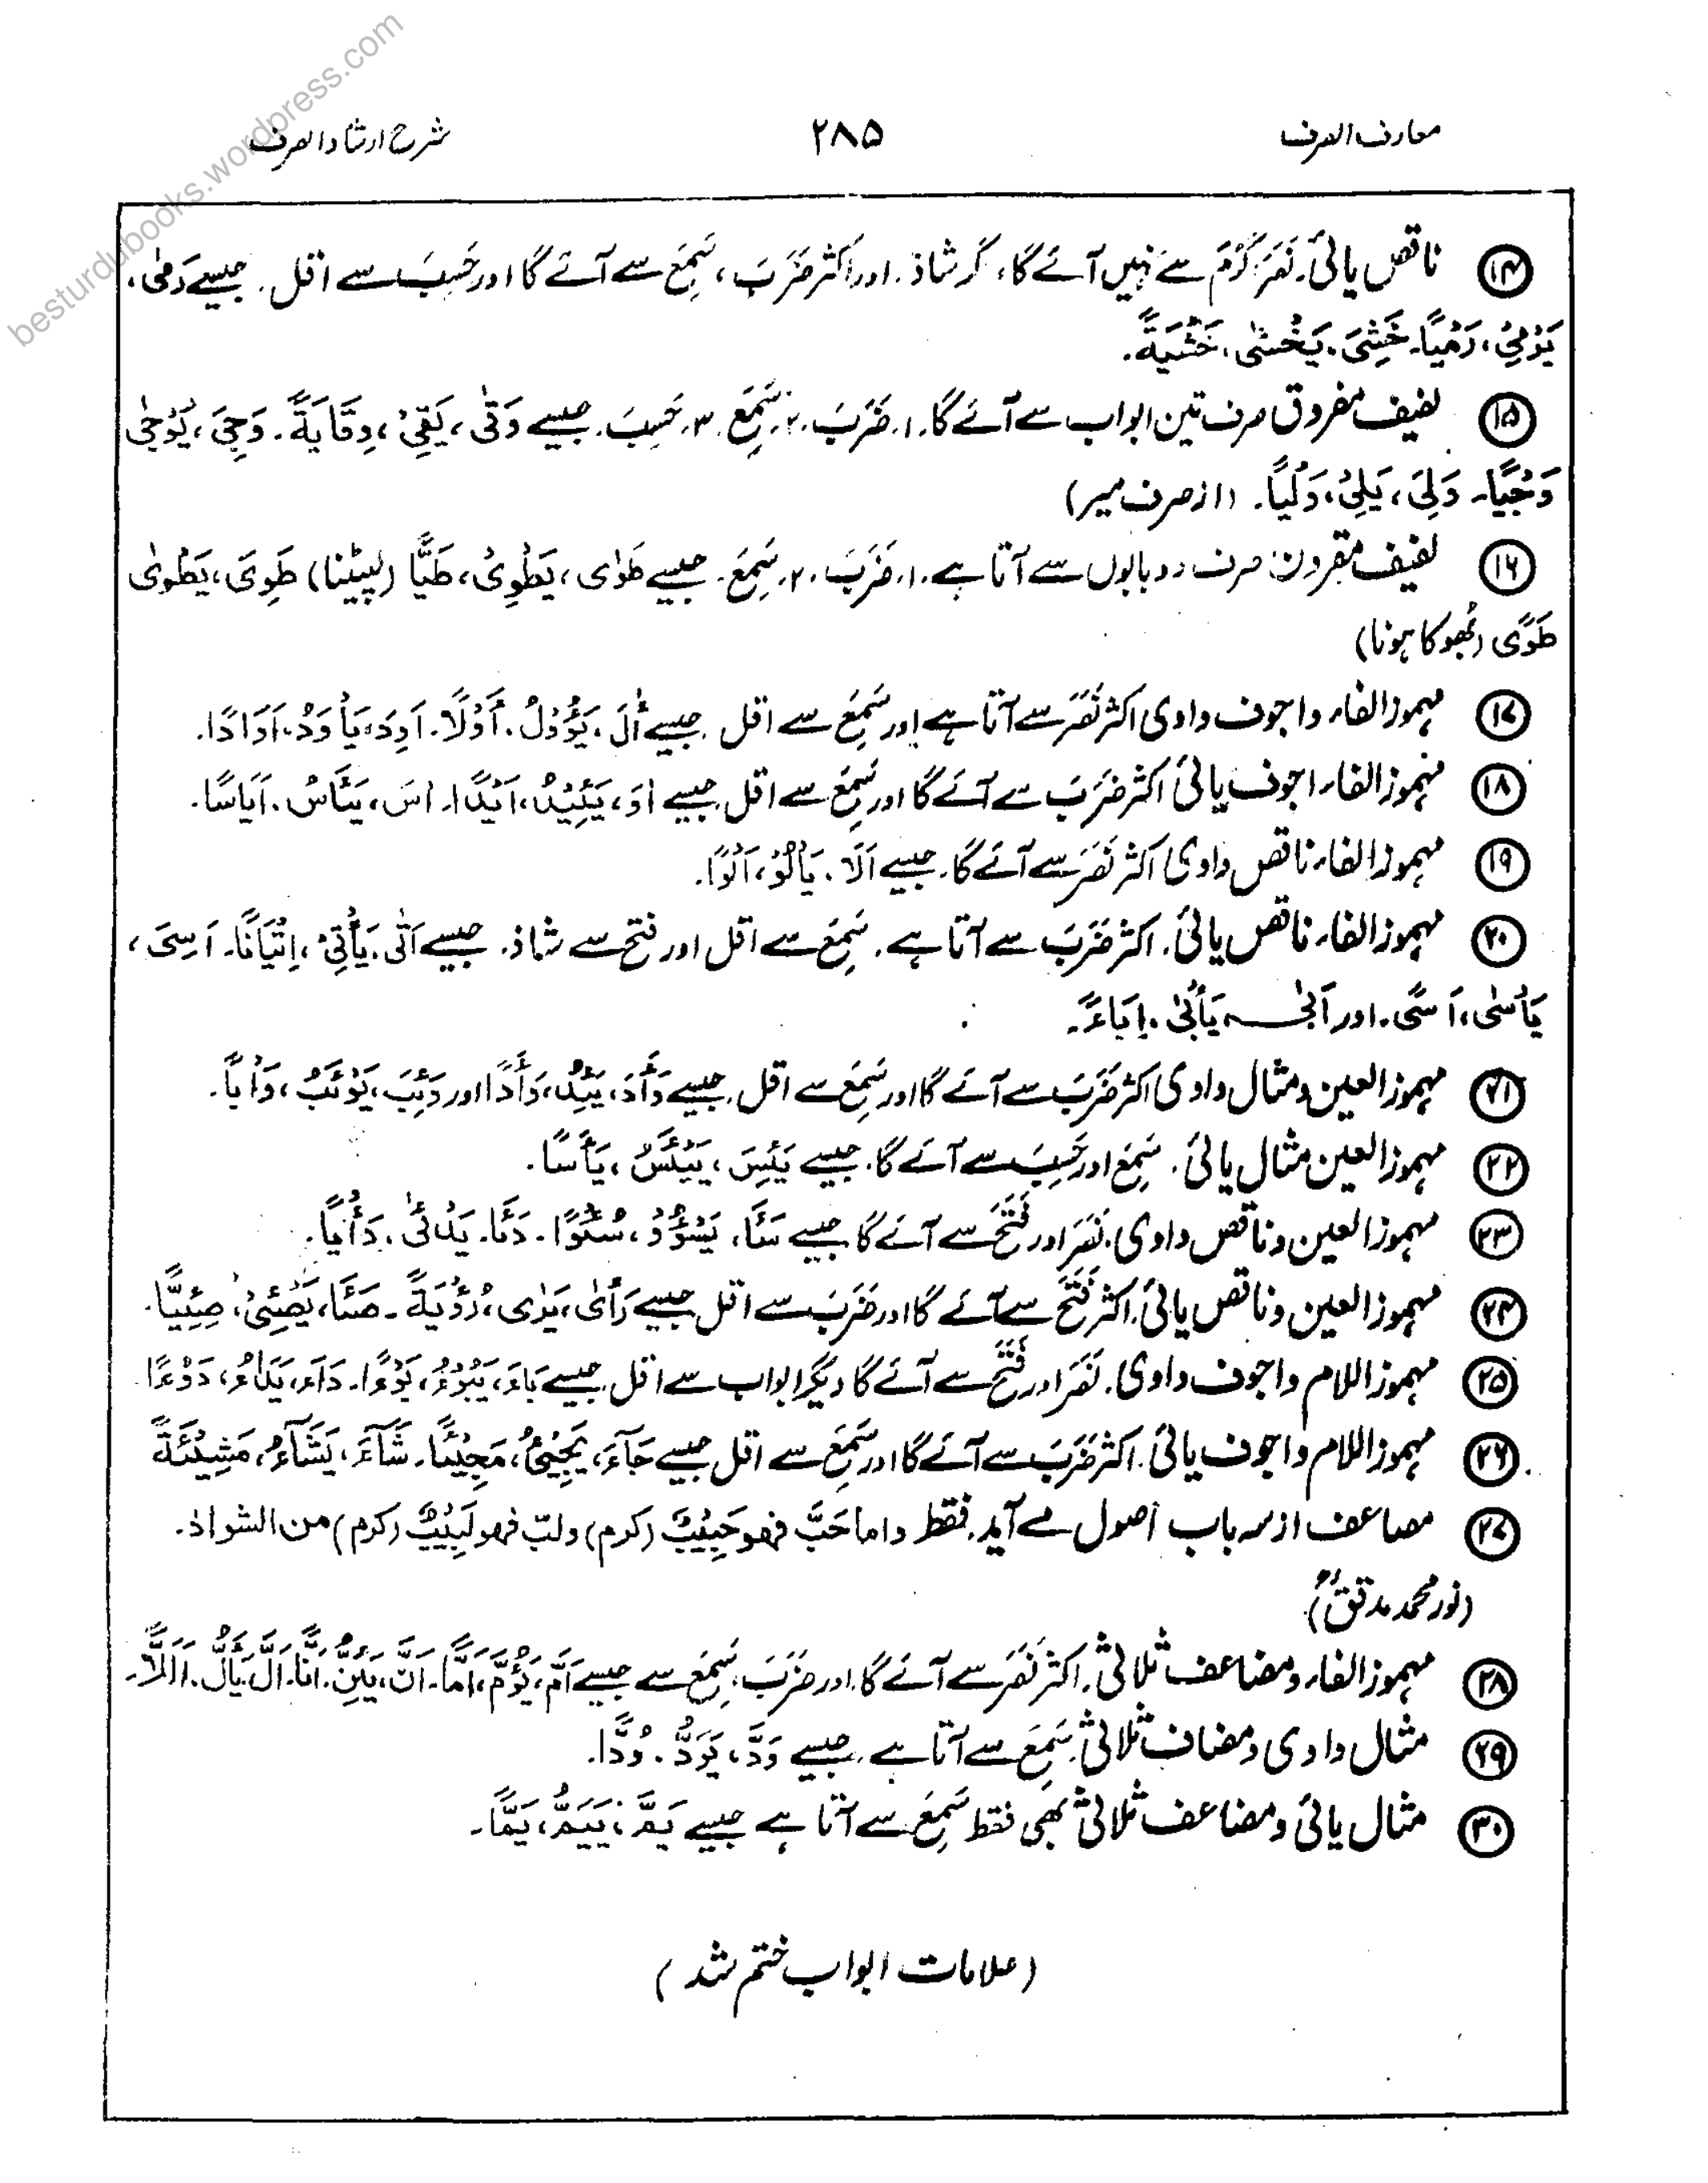 besturdubooks.wordpress.com
معارف الصرف ۲۸۵ شرح ارشاد الصرف
۱۴ ناقص یائی۔ نَصَرَ كَرُمَ سے نہیں آئے گا، گر شاذ۔ اور اکثر ضَرَبَ، سَمِعَ سے آئے گا اور حَسِبَ سے اقل۔ جیسے رَمٰی،
یَرْمِیْ، رَمْیًا۔ خَشِیَ۔ یَخْشٰی، خَشْیَةً۔
۱۵ لفیف مفروق صرف تین ابواب سے آئے گا۔ ۱۔ ضَرَبَ۔ ۲۔ سَمِعَ۔ ۳۔ حَسِبَ۔ جیسے وَقٰی، یَقِیْ، وِقَایَةً۔ وَجِیَ، یَوْجٰی
وَجْیًا۔ وَلِیَ، یَلِیْ، وَلْیًا۔ (از صرف میر)
۱۶ لفیف مقرون صرف دو بابوں سے آتا ہے۔ ۱۔ ضَرَبَ۔ ۲۔ سَمِعَ۔ جیسے طَوٰی، یَطْوِیْ، طَیًّا (لپیٹنا) طَوِیَ، یَطْوٰی
طَوًی (بُھوکا ہونا)
۱۷ مہموز الفاء واجوف واوی اکثر نَصَرَ سے آتا ہے اور سَمِعَ سے اقل۔ جیسے أٰلَ، یَؤُوْلُ۔ أَوْلًا۔ اَوِدَ، یَأْوَدُ، اَوَادًا۔
۱۸ مہموز الفاء اجوف یائی اکثر ضَرَبَ سے آئے گا اور سَمِعَ سے اقل جیسے ادَ، یَئِیْدُ، اَیْدًا۔ اسَ، یَئَاسُ۔ اَیَاسًا۔
۱۹ مہموز الفاء ناقص واوی اکثر نَصَرَ سے آئے گا۔ جیسے اَلَا۔ یَأْلُوْ، اَلْوًا۔
۲۰ مہموز الفاء ناقص یائی۔ اکثر ضَرَبَ سے آتا ہے۔ سَمِعَ سے اقل اور فتح سے شاذ۔ جیسے اَتٰی۔ یَأْتِیْ، اِتْیَانًا۔ اَسِیَ،
یَأْسٰی، اَسًی۔ اور اَبٰی یَأْبٰی۔ اِبَاءً۔
۲۱ مہموز العین ومثال واوی اکثر ضَرَبَ سے آئے گا اور سَمِعَ سے اقل۔ جیسے وَأَدَ، یَئِدُ، وَأْدًا اور وَئِبَ، یَوْئَبُ، وَأْبًا۔
۲۲ مہموز العین مثال یائی۔ سَمِعَ اور حَسِبَ سے آئے گا۔ جیسے یَئِسَ، یَیْئَسُ، یَأْسًا۔
۲۳ مہموز العین وناقص واوی۔ نَصَرَ اور فَتَحَ سے آئے گا جیسے سَئَا، یَسْؤُوْ، سَئْوًا۔ دَئَا۔ یَدْأٰی۔ دَأْیًا۔
۲۴ مہموز العین وناقص یائی۔ اکثر فَتَحَ سے آئے گا اور ضَرَبَ سے اقل جیسے رَأٰی، یَرٰی، رُؤْیَةً۔ صَئَا، یَصْئِیْ، صِئِیًّا۔
۲۵ مہموز اللام واجوف واوی۔ نَصَرَ اور فَتَحَ سے آئے گا دیگر ابواب سے اقل۔ جیسے بَاءَ، یَبُوْءُ، بَوْءًا۔ دَاءَ، یَدَاءُ، دَوْءًا
۲۶ مہموز اللام واجوف یائی۔ اکثر ضَرَبَ سے آئے گا اور سَمِعَ سے اقل جیسے جَآءَ، یَجِیْئُ، مَجِیْئًا۔ شَآءَ، یَشَآءُ، مَشِیْئَةً
۲۷ مضاعف از سہ باب اصول مے آید۔ فقط واما حَبَّ فھو حَبِیْبٌ (کرم) ولبّ فھو لَبِیْبٌ (کرم) من الشواذ۔
(نور محمد مدقق)
۲۸ مہموز الفاء ومضاعف ثلاثی۔ اکثر نَصَرَ سے آئے گا۔ اور ضَرَبَ، سَمِعَ سے جیسے اَمَّ، یَؤُمُّ، اَمًّا۔ اَنَّ، یَئِنُّ۔ اَنًّا۔ اَلَّ، یَأَلُّ۔ اَلَلًا۔
۲۹ مثال واوی ومضاف ثلاثی۔ سَمِعَ سے آتا ہے۔ جیسے وَدَّ، یَوَدُّ۔ وُدًّا۔
۳۰ مثال یائی ومضاعف ثلاثی بھی فقط سَمِعَ سے آتا ہے جیسے یَمَّ، یَیَمُّ، یَمًّا۔
(علامات ابواب ختم شد)